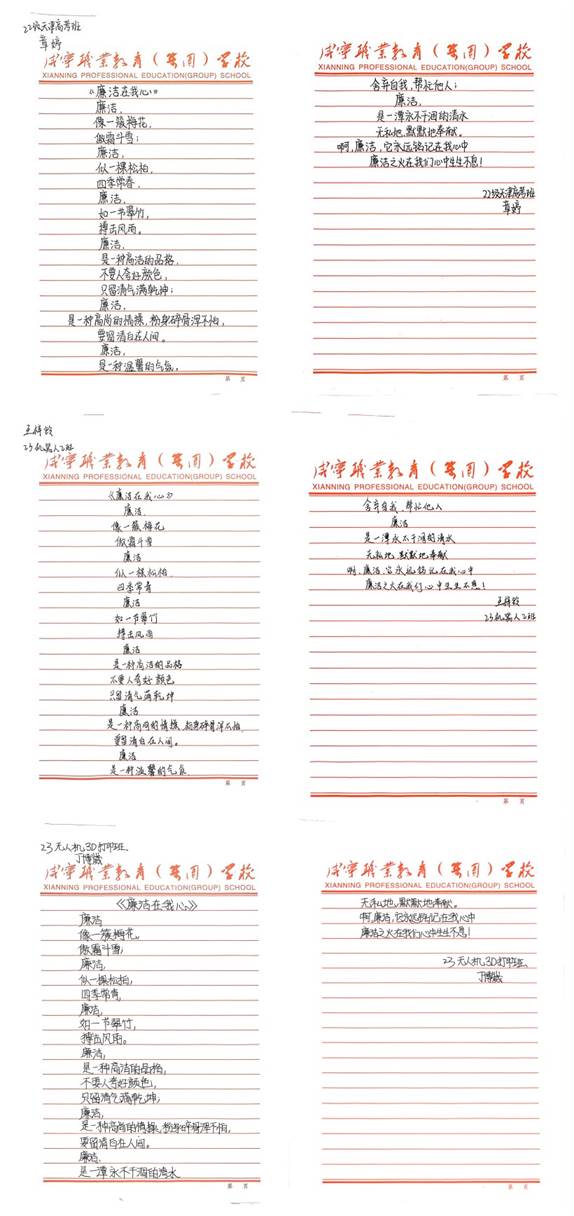 22级天津高考班
章婷
咸宁职业教育(集团)学校
XIANNING PROFESSIONAL EDUCATION(GROUP) SCHOOL
《廉洁在我心》
廉洁,
像一簇梅花,
傲霜斗雪;
廉洁,
似一棵松柏,
四季常春,
廉洁,
如一节翠竹,
搏击风雨。
廉洁,
是一种高洁的品格,
不要人夸好颜色,
只留清气满乾坤;
廉洁,
是一种高尚的情操,粉身碎骨浑不怕,
要留清白在人间。
廉洁,
是一种温馨的气氛,
第 页
咸宁职业教育(集团)学校
XIANNING PROFESSIONAL EDUCATION(GROUP) SCHOOL
舍弃自我,帮忙他人;
廉洁,
是一潭永不干涸的清水
无私地,默默地奉献。
啊,廉洁,它永远铭记在我心中
廉洁之火在我们心中生生不息!
22级天津高考班
章婷
第 页
23机器人2班
咸宁职业教育(集团)学校
XIANNING PROFESSIONAL EDUCATION(GROUP) SCHOOL
《廉洁在我心》
廉洁
像一簇梅花
傲霜斗雪
廉洁
似一棵松柏
四季常青
廉洁
如一节翠竹
搏击风雨
廉洁
是一种高洁的品格
不要人夸好颜色
只留清气满乾坤
廉洁
是一种高尚的情操,粉身碎骨浑不怕
要留清白在人间。
廉洁
是一种温馨的气氛
第 页
咸宁职业教育(集团)学校
XIANNING PROFESSIONAL EDUCATION(GROUP) SCHOOL
舍弃自我,帮忙他人
廉洁
是一潭永不干涸的清水
无私地,默默地奉献
啊,廉洁,它永远铭记在我心中
廉洁之火在我们心中生生不息!
23机器人2班
第 页
23无人机,3D打印班
咸宁职业教育(集团)学校
XIANNING PROFESSIONAL EDUCATION(GROUP) SCHOOL
《廉洁在我心》
廉洁
像一簇梅花,
傲霜斗雪;
廉洁,
似一棵松柏,
四季常青,
廉洁,
如一节翠竹,
搏击风雨。
廉洁,
是一种高洁的品格,
不要人夸好颜色,
只留清气满乾坤;
廉洁,
是一种高尚的情操,粉身碎骨浑不怕,
要留清白在人间。
廉洁,
是一潭永不干涸的清水
第 页
无私地,默默地奉献。
啊,廉洁,它永远铭记在我心中
廉洁之火在我们心中生生不息!
23无人机,3D打印班
第 页